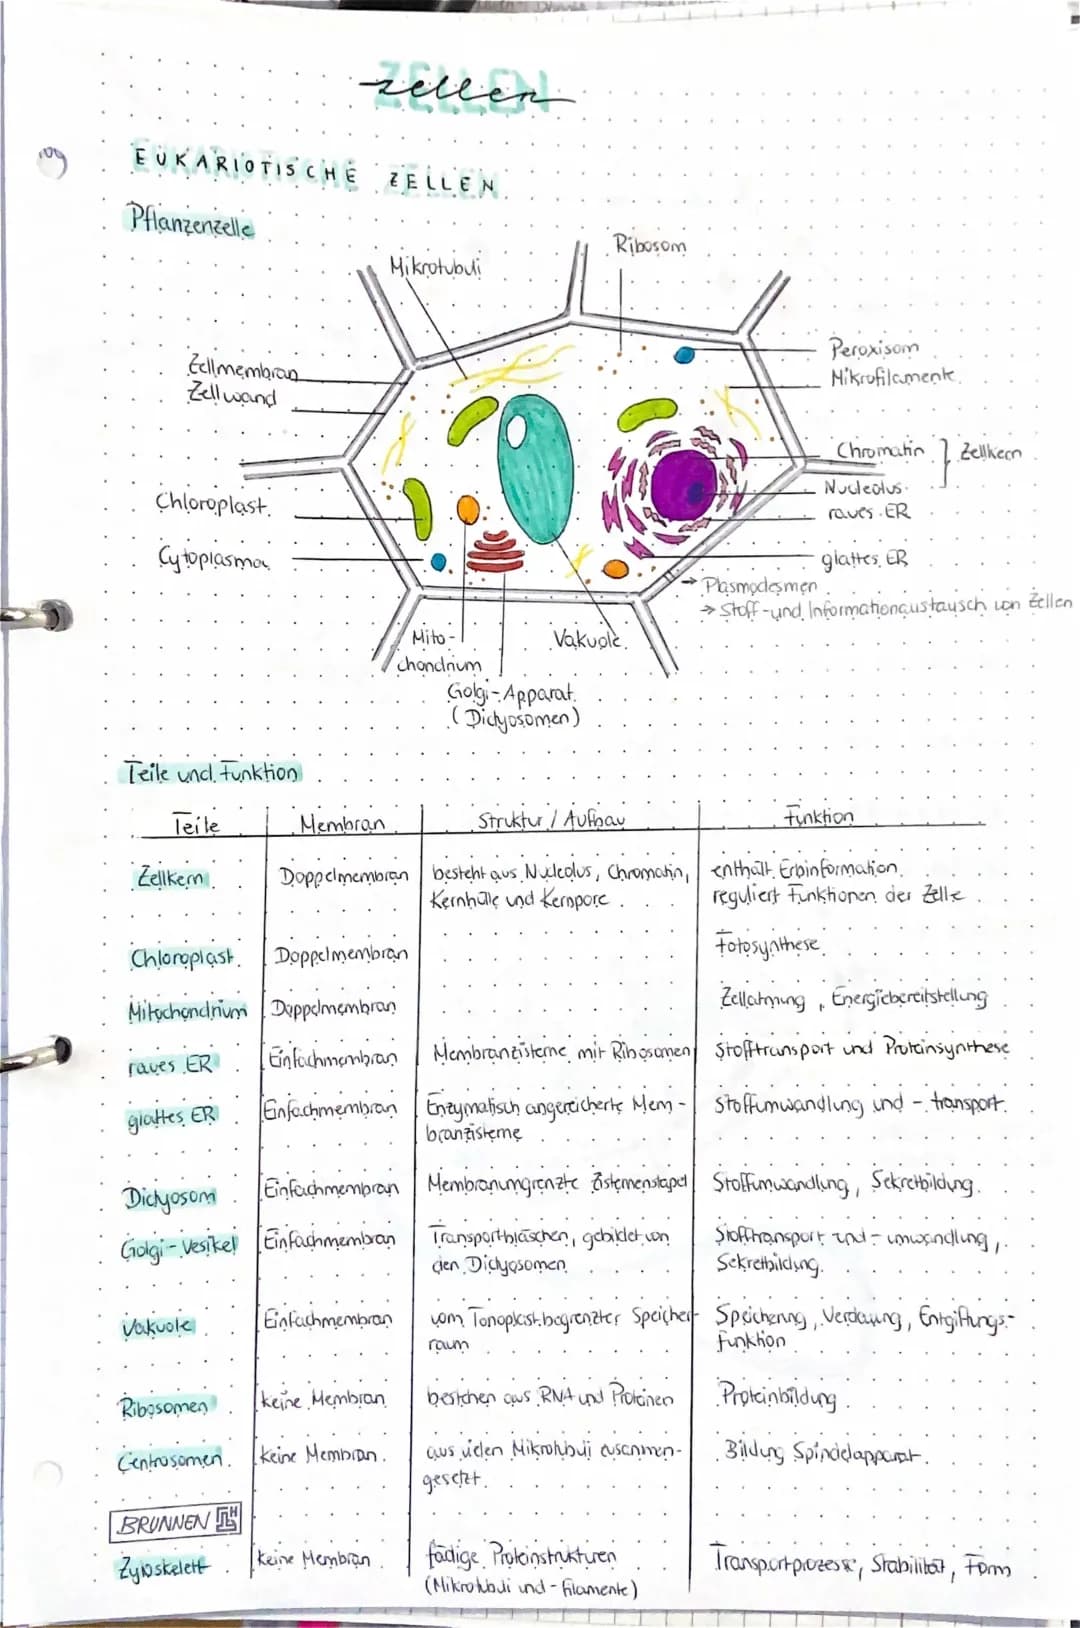 ZELLEN
zellen
EUKARIOTISCHE ZELLEN
Pflanzenzelle
Mikrotubuli
Ribosom
Zellmembran
Zellwand
Peroxisom
Mikrofilamente
Chromatin } Zellkern
Nucleolus
raues ER
Chloroplast
Cytoplasma
glattes ER
→ Plasmodesmen
→ Stoff- und Informationaustausch von Zellen
Mito-
chondrium
Vakuole
Golgi-Apparat
(Dictyosomen)
Teile und Funktion
Teile Membran Struktur / Aufbau Funktion
Zellkern Doppelmembran besteht aus Nucleolus, Chromatin, enthält Erbinformation,
Kernhülle und Kernpore reguliert Funktionen der Zelle
Chloroplast Doppelmembran Fotosynthese
Mitochondrium Doppelmembran Zellatmung, Energiebereitstellung
raues ER Einfachmembran Membranzisterne mit Ribosomen Stofftransport und Proteinsynthese
glattes ER Einfachmembran Enzymatisch angereicherte Mem- Stoffumwandlung und -transport
branzisterne
Dictyosom Einfachmembran Membranumgrenzte Zisternenstapel Stoffumwandlung, Sekretbildung
Golgi-Vesikel Einfachmembran Transportbläschen, gebildet von Stofftransport und -umwandlung,
den Dictyosomen Sekretbildung
Vakuole Einfachmembran vom Tonoplast begrenzter Speicher- Speicherung, Verdauung, Entgiftungs-
raum funktion
Ribosomen keine Membran bestehen aus RNA und Proteinen Proteinbildung
Centrosomen keine Membran aus vielen Mikrotubuli zusammen- Bildung Spindelapparat
gesetzt
BRUNNEN
Zytoskelett keine Membran fädige Proteinstrukturen Transportprozesse, Stabilität, Form
(Mikrotubuli und -filamente)